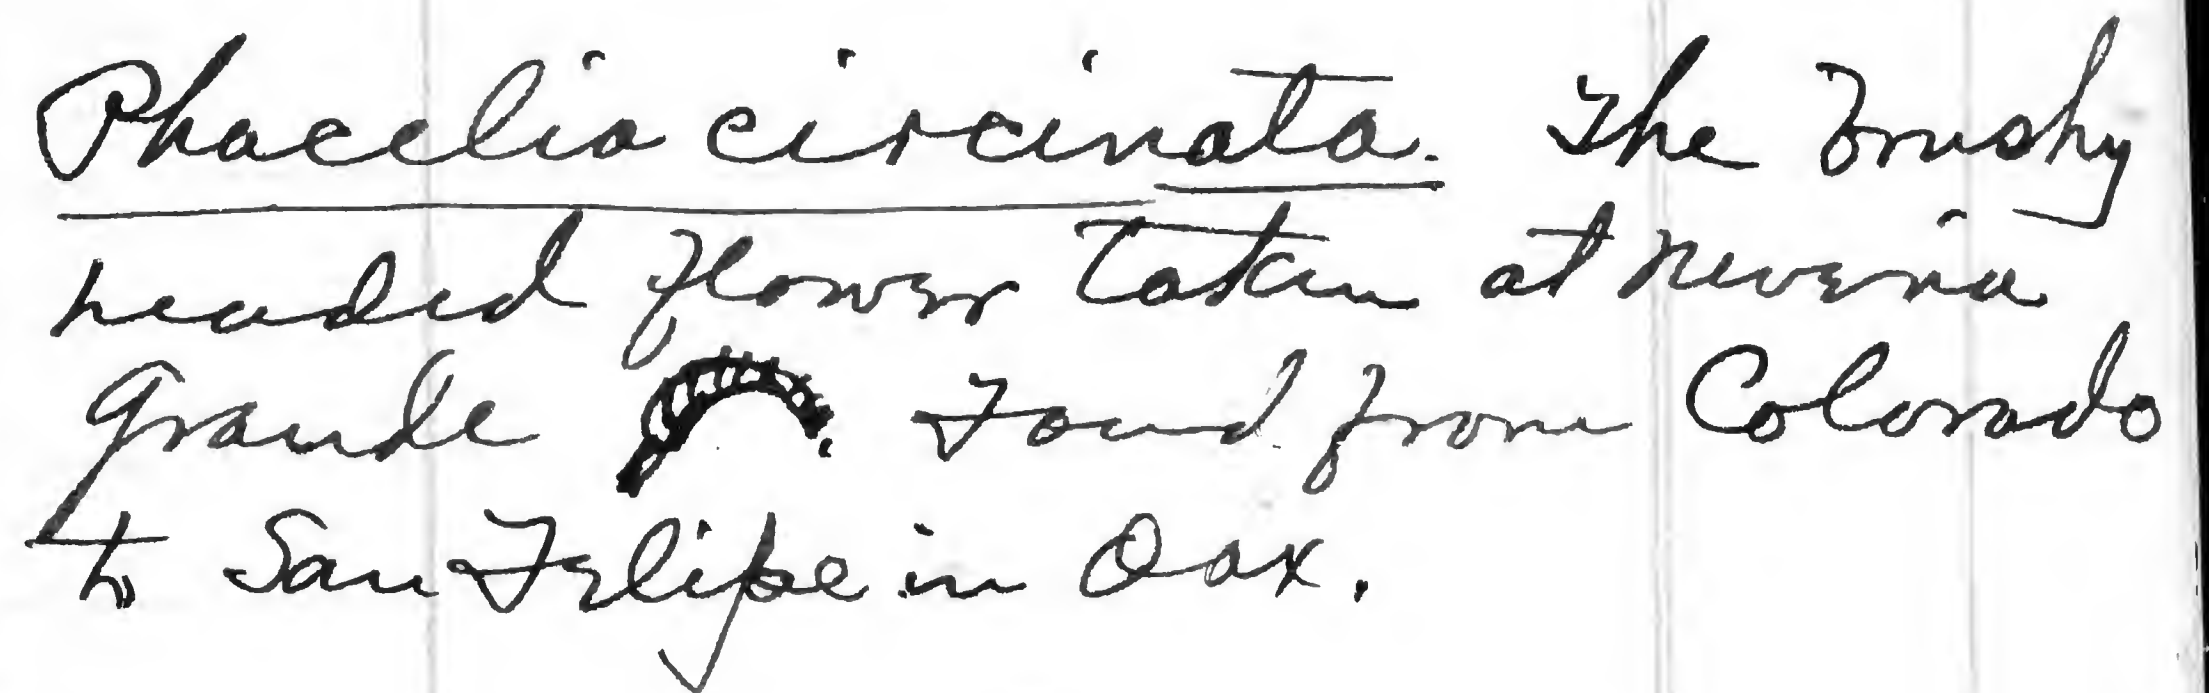 Phacelia circinata. The Brushy
headed flower taken at Neveria
Grande . Found from Colorado
to San Felipe in Oax.